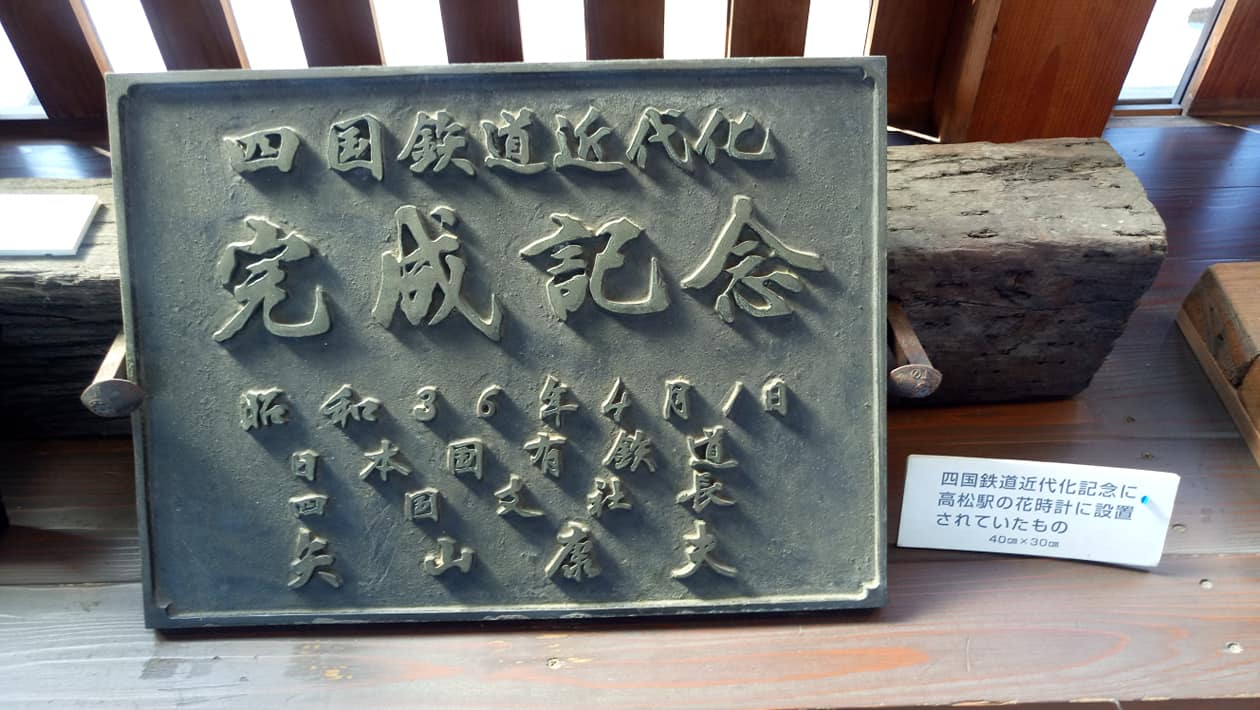 四国鉄道近代化
完成記念
昭和36年4月1日
日本國有鉄道
四國支社長
矢山康夫
四国鉄道近代化記念に
高松駅の花時計に設置
されていたもの
40㎝×30㎝